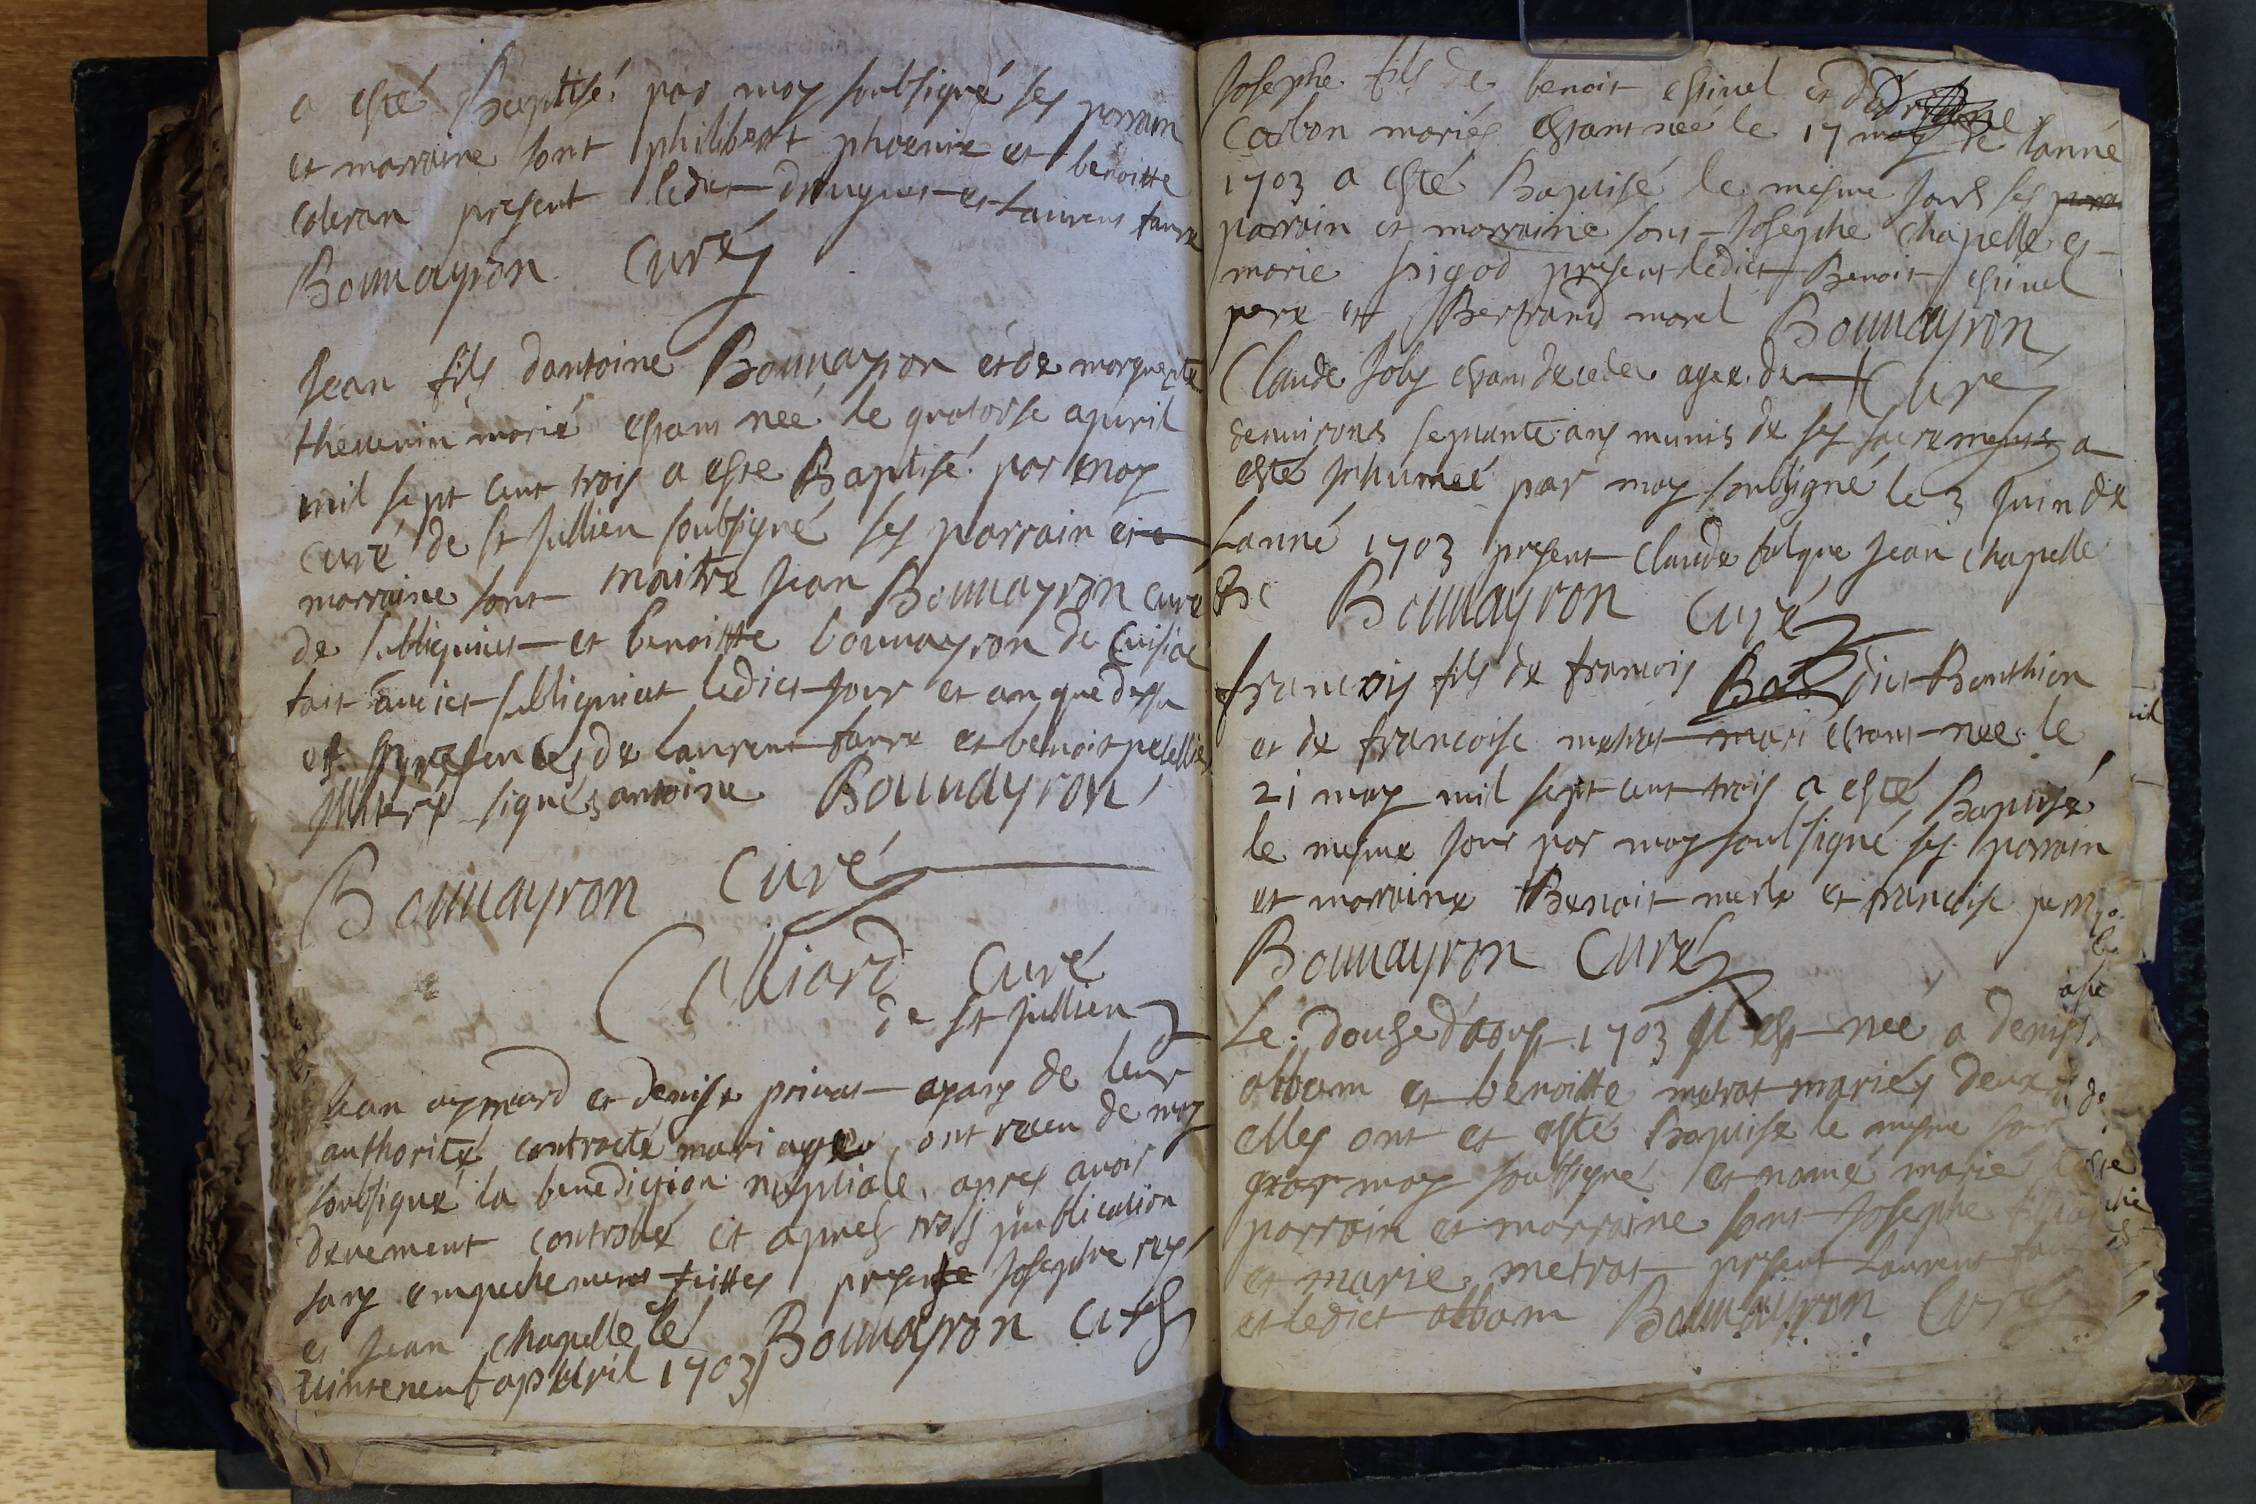 a esté Baptisé par moy soubsigné ses parrain
et marraine sont philibert phoenix et benoitte
coleran present ledict druguet et Laurens faure
Bouuayron Curé
Jean fils dantoine Bouuayron et de marguerite
theuenin marié estant neé le quatorse apuril
mil sept cent trois a este Baptisé par moy
curé de st Jullien soubsigné ses parrain et
marraine sont maitre Jean Bouuayron curé
de et benoitte bouuayron de Cuisiat
fait audict ledict Jour et an que dessu
et presences de laurent faure et benoist
signés antoine Bouuayron
Bouuayron Curé
Curé
de st Jullien
Jean aymard et denise priuat apres de leur
authorité contracté mariage ont receu de moy
soubsigné la benediction nuptiale apres auoir
derement controlé et apres trois publication
sans empechement faittes present Josephe rey
et Jean Chapelle le
uinteneuf apuril 1703 Bouuayron curé
Josephe fils de benoit espinel et
Carbon mariés estant née le 17 may de lanné
1703 a esté Baptisé le mesme Jour ses
parrain et marraine sont Josephe Chapelle et
marie pigod present ledict Benoit espinel
pere et Bertrand morel Bouuayron
Claude Joly estant decedee agee de Curé
denuirons septante ans munis de ses sacrements a
esté Inhumeé par moy soubsigné le 3 Juin de
Lanné 1703 present Claude falque Jean Chapelle
Bouuayron Curé
francois fils de francois dict Bonthion
et de francoise metrat mari estant neé le
21 may mil sept cent trois a esté Baptisé
le mesme Jour par moy soubsigné ses parrain
et marraine Benoit merle et francoise
Bouuayron Curé
Le douse d'aoust 1703 Il est neé a denis
albam et benoitte metrat mariés deux
elles ont et esté Baptise le mesme Jour
par moy soubsigné et nomé marie
parrain et marraine sont Josephe
et marie metrat present Laurens
et ledict albam Bouuayron Curé